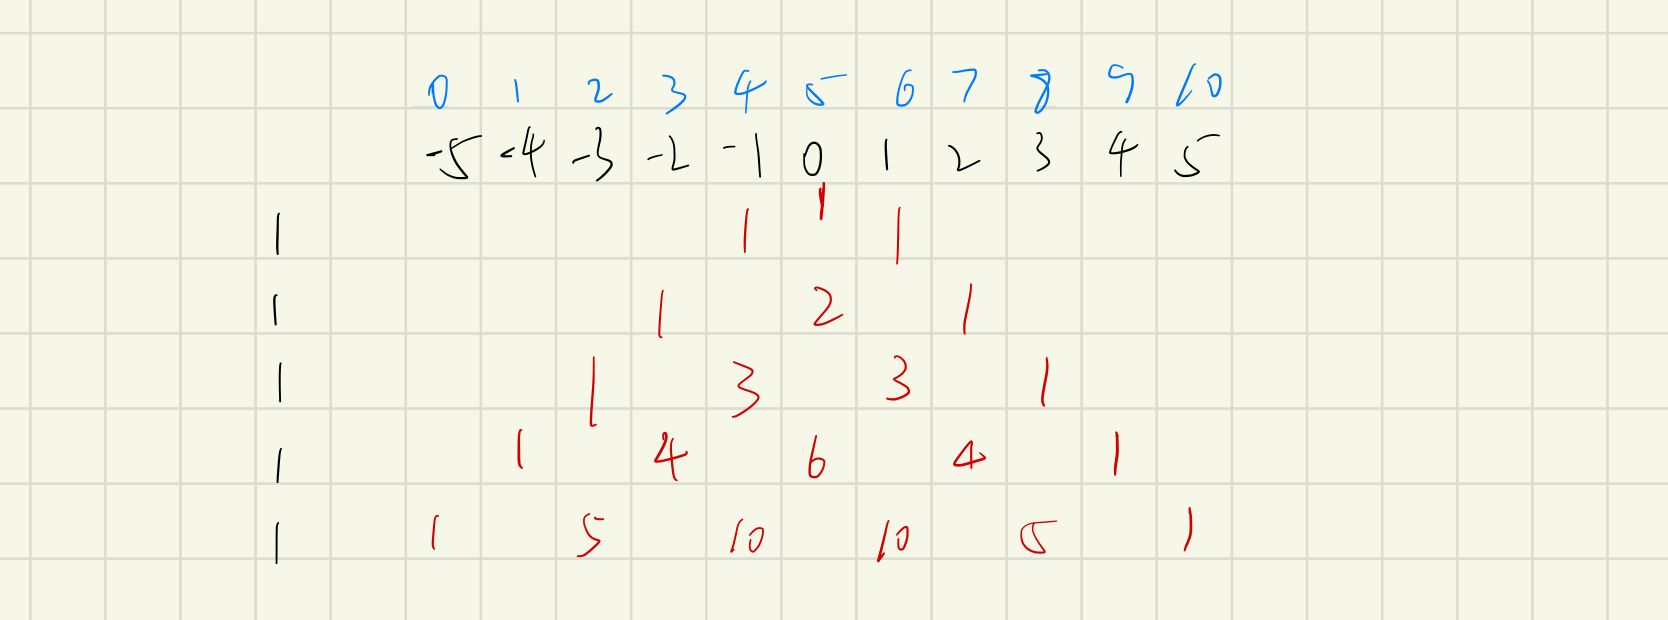 0 1 2 3 4 5 6 7 8 9 10
-5 -4 -3 -2 -1 0 1 2 3 4 5
1
1 1 1
1 1 2 1
1 1 3 3 1
1 1 4 6 4 1
1 1 5 10 10 5 1